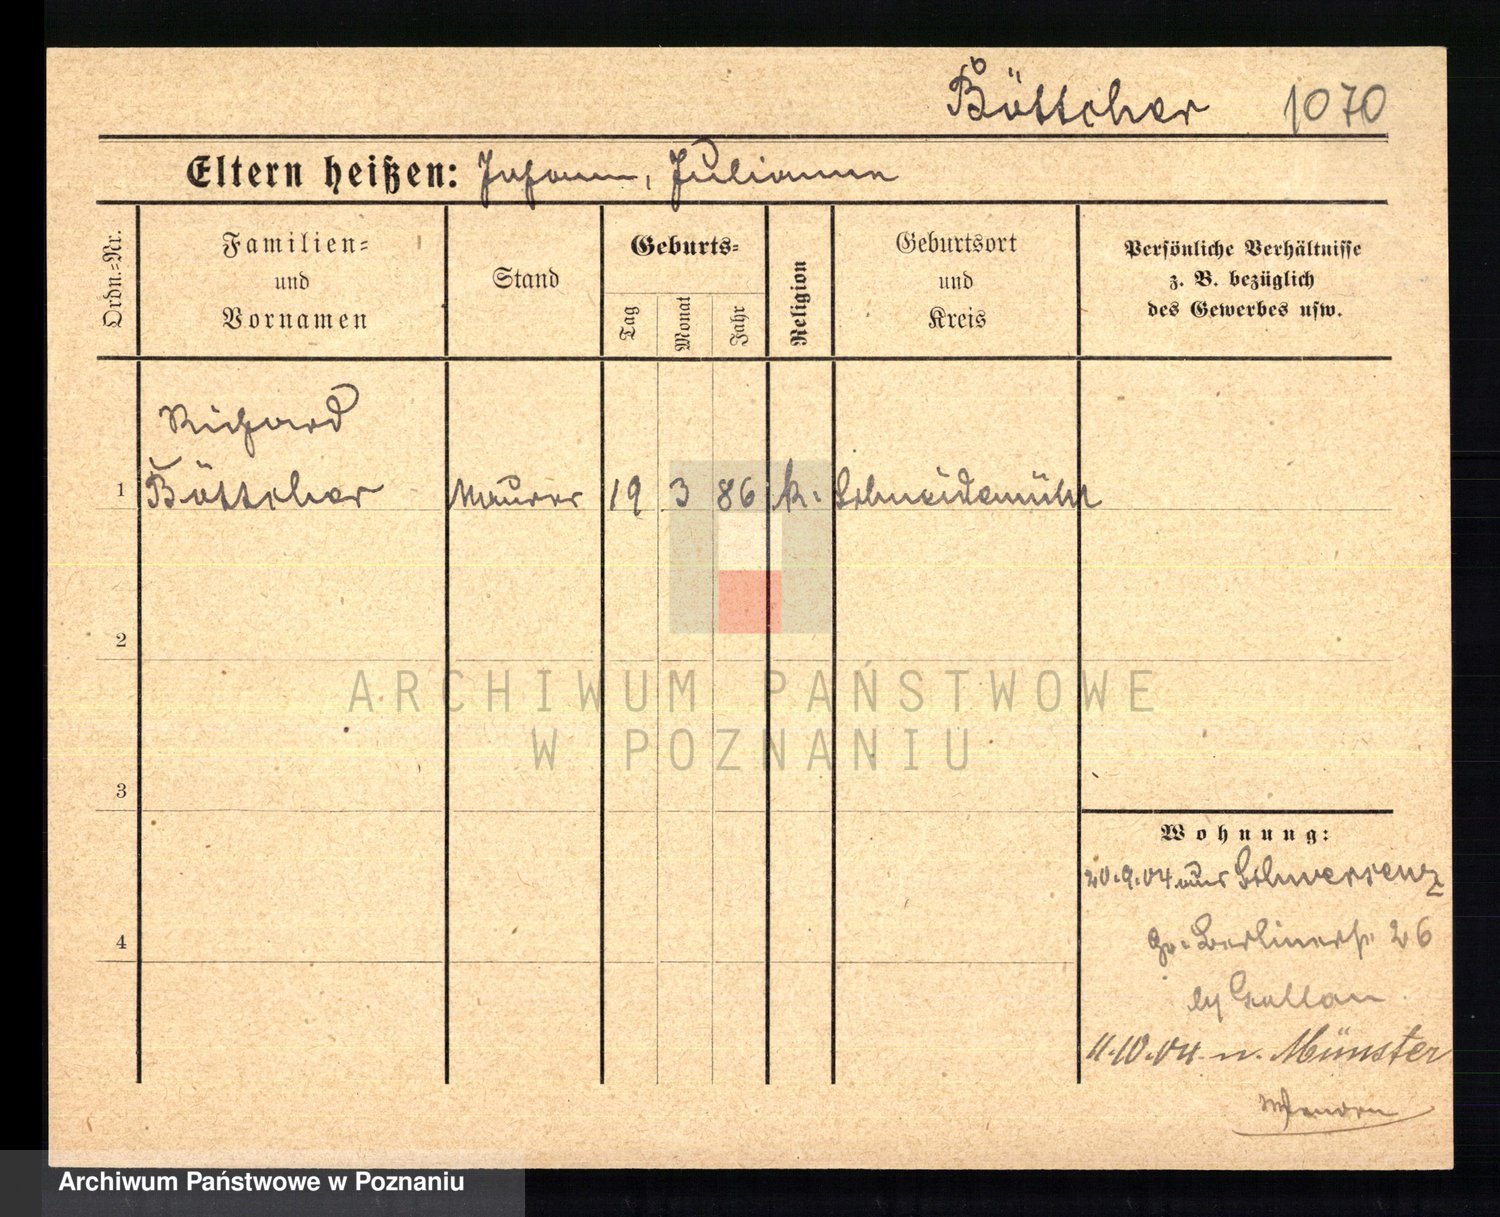 Böttcher 1070
Eltern heißen: Johann, Julianna
Ordn.=Nr.
Familien=
und
Vornamen
Stand
Geburts=
Tag
Monat
Jahr
Religion
Geburtsort
und
Kreis
Persönliche Verhältnisse
z. B. bezüglich
des Gewerbes usw.
Richard
1 Böttcher Maurer 19 3 86 k. Schneidemühl
2
3
4
ARCHIWUM PAŃSTWOWE
W POZNANIU
Wohnung:
20.9.04 aus Schwersenz
Gr. Berlinerstr. 26
11.10.04 n. Münster
Archiwum Państwowe w Poznaniu